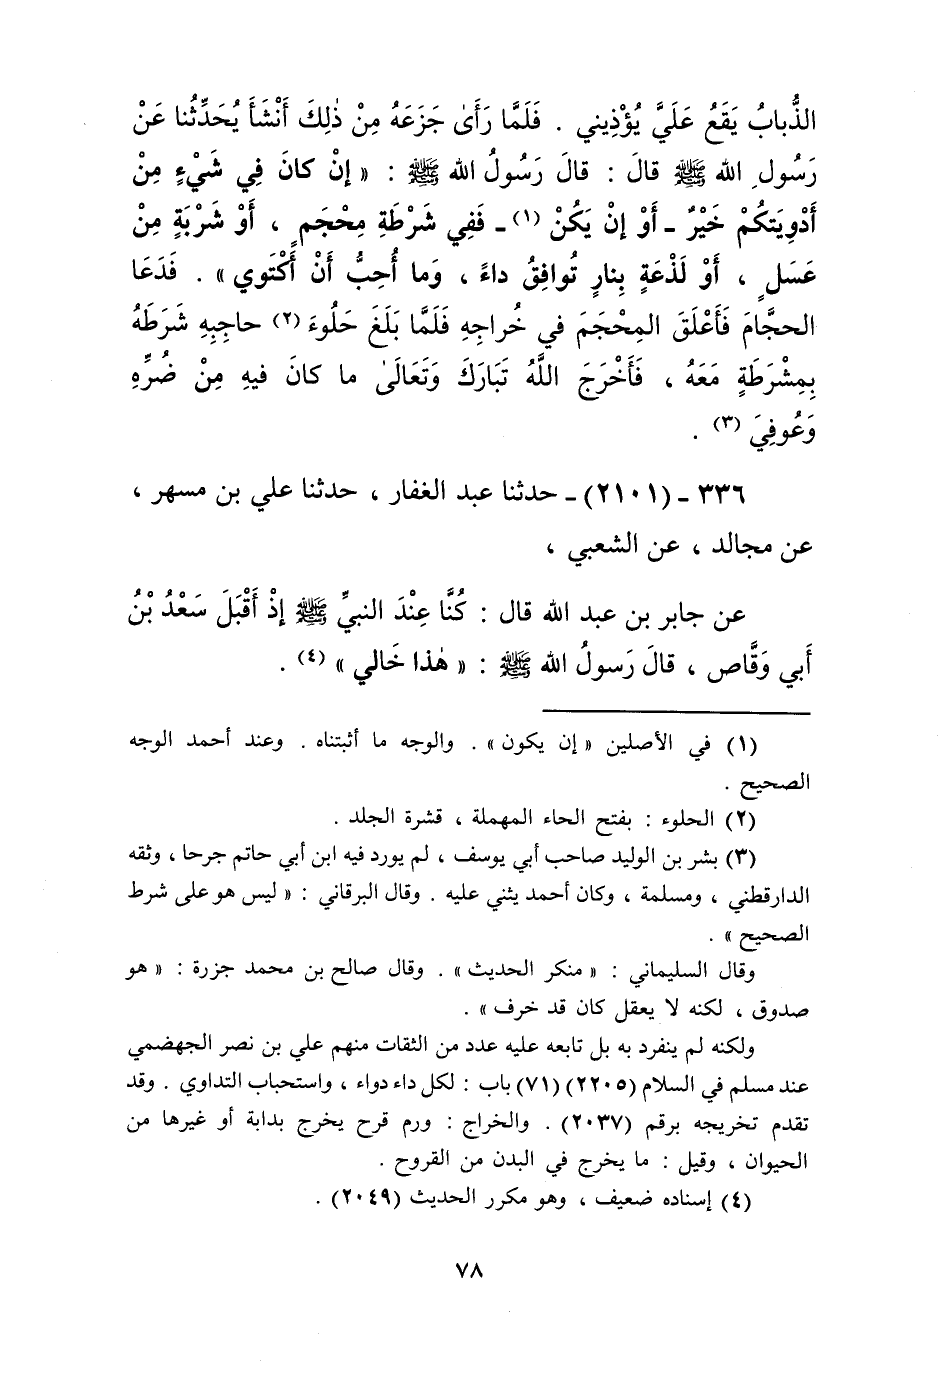 الذُّبابُ يَقَعُ عَلَيَّ يُؤْذِيني . فَلَمَّا رَأَىٰ جَزَعَهُ مِنْ ذٰلِكَ أَنْشَأَ يُحَدِّثُنا عَنْ
رَسُولِ الله ﷺ قالَ : قالَ رَسُولُ الله ﷺ : « إنْ كانَ فِي شَيْءٍ مِنْ
أَدْوِيَتِكُمْ خَيْرٌ ـ أَوْ إنْ يَكُنْ (١) ـ فَفِي شَرْطَةِ مِحْجَمٍ ، أَوْ شَرْبَةٍ مِنْ
عَسَلٍ ، أَوْ لَذْعَةٍ بِنارٍ تُوافِقُ داءً ، وَما أُحِبُّ أَنْ أَكْتَوي » . فَدَعَا
الحجَّامَ فَأَعْلَقَ المِحْجَمَ في خُراجِهِ فَلَمَّا بَلَغَ حَلُوءَ (٢) حاجِبِهِ شَرَطَهُ
بِمِشْرَطَةٍ مَعَهُ ، فَأَخْرَجَ اللَّهُ تَبَارَكَ وَتَعَالَىٰ ما كانَ فيهِ مِنْ ضُرِّهِ
وَعُوفِيَ (٣) .
٣٣٦ ـ (٢١٠١) ـ حدثنا عبد الغفار ، حدثنا علي بن مسهر ،
عن مجالد ، عن الشعبي ،
عن جابر بن عبد الله قال : كُنَّا عِنْدَ النبيِّ ﷺ إذْ أَقْبَلَ سَعْدُ بْنُ
أَبي وَقَّاص ، قالَ رَسولُ الله ﷺ : « هٰذا خَالي » (٤) .
(١) في الأصلين « إن يكون » . والوجه ما أثبتناه . وعند أحمد الوجه
الصحيح .
(٢) الحلوء : بفتح الحاء المهملة ، قشرة الجلد .
(٣) بشر بن الوليد صاحب أبي يوسف ، لم يورد فيه ابن أبي حاتم جرحا ، وثقه
الدارقطني ، ومسلمة ، وكان أحمد يثني عليه . وقال البرقاني : « ليس هو على شرط
الصحيح » .
وقال السليماني : « منكر الحديث » . وقال صالح بن محمد جزرة : « هو
صدوق ، لكنه لا يعقل كان قد خرف » .
ولكنه لم ينفرد به بل تابعه عليه عدد من الثقات منهم علي بن نصر الجهضمي
عند مسلم في السلام (٢٢٠٥) (٧١) باب : لكل داء دواء ، واستحباب التداوي . وقد
تقدم تخريجه برقم (٢٠٣٧) . والخراج : ورم قرح يخرج بدابة أو غيرها من
الحيوان ، وقيل : ما يخرج في البدن من القروح .
(٤) إسناده ضعيف ، وهو مكرر الحديث (٢٠٤٩) .
٧٨